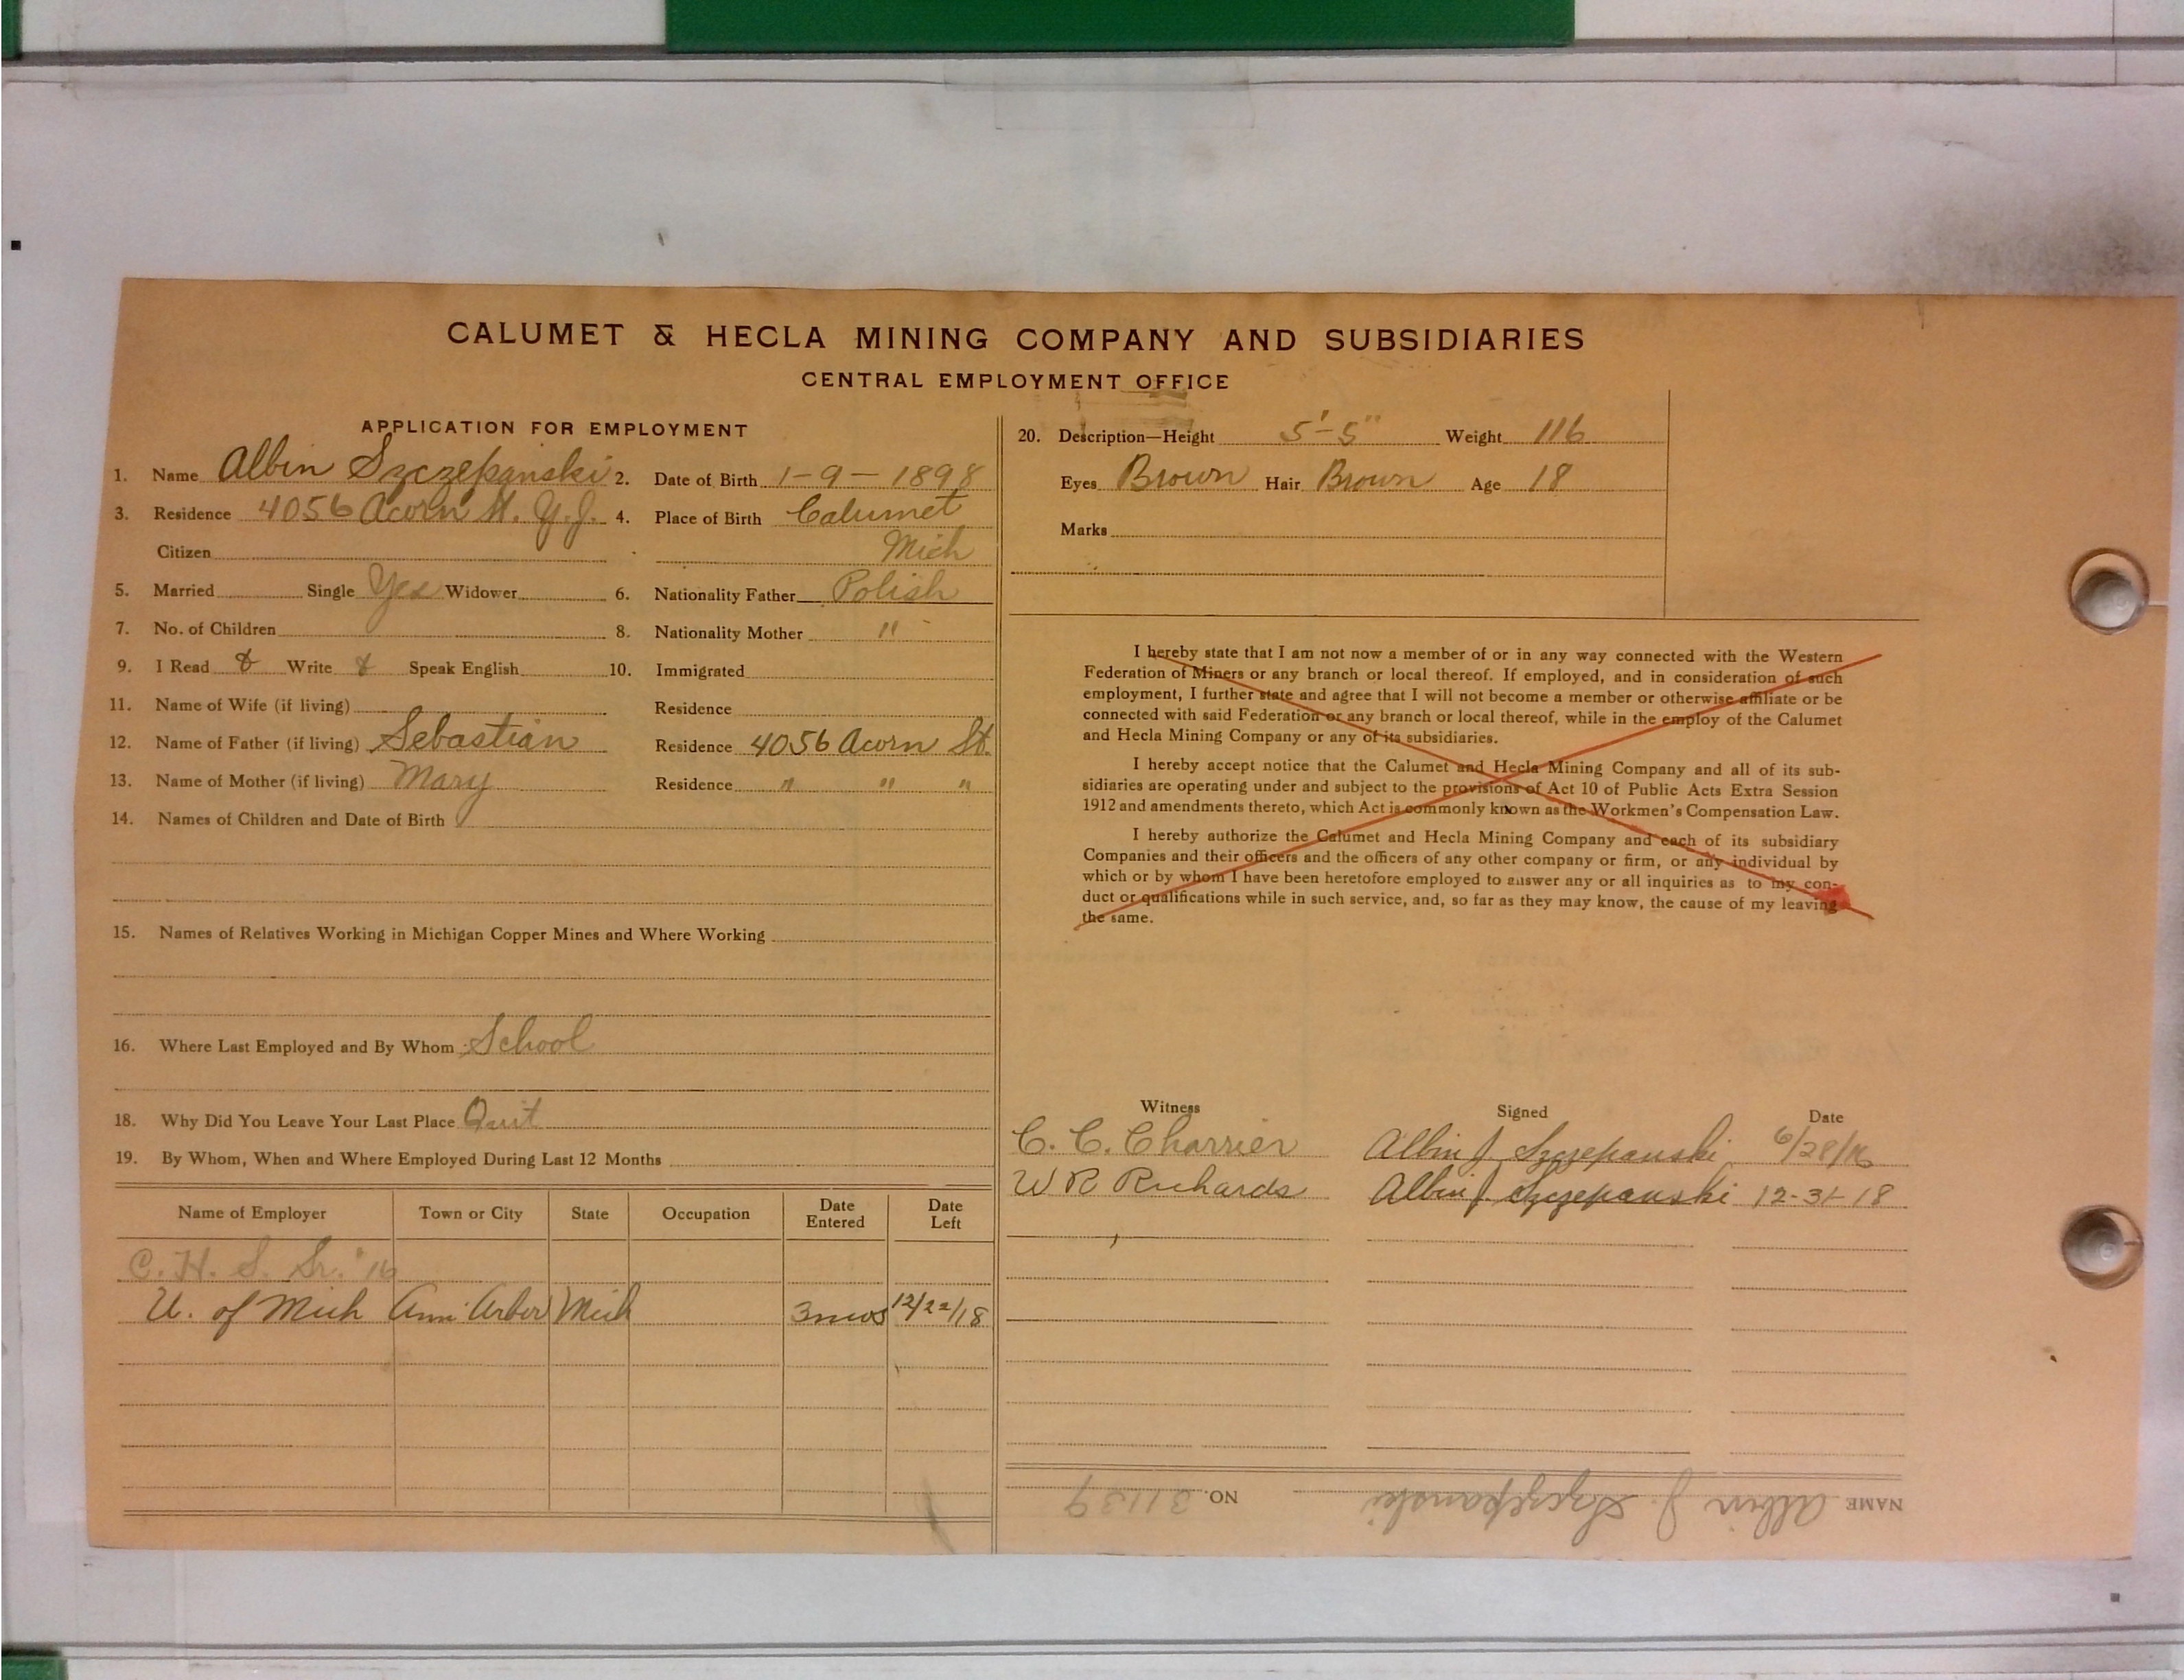 CALUMET & HECLA MINING COMPANY AND SUBSIDIARIES
CENTRAL EMPLOYMENT OFFICE
APPLICATION FOR EMPLOYMENT
1. Name Albin Szczepanski 2. Date of Birth 1-9-1898
3. Residence 4056 Acorn St. Y.J. 4. Place of Birth Calumet
Citizen Mich
5. Married Single Yes Widower 6. Nationality Father Polish
7. No. of Children 8. Nationality Mother "
9. I Read & Write & Speak English 10. Immigrated
11. Name of Wife (if living) Residence
12. Name of Father (if living) Sebastian Residence 4056 Acorn St.
13. Name of Mother (if living) Mary Residence " " "
14. Names of Children and Date of Birth
15. Names of Relatives Working in Michigan Copper Mines and Where Working
16. Where Last Employed and By Whom School
18. Why Did You Leave Your Last Place Quit
19. By Whom, When and Where Employed During Last 12 Months
Name of Employer Town or City State Occupation Date Entered Date Left
C. H. S. Sr. '16
U. of Mich Ann Arbor Mich 3 mos 12/22/18
20. Description—Height 5'-5" Weight 116
Eyes Brown Hair Brown Age 18
Marks
I hereby state that I am not now a member of or in any way connected with the Western
Federation of Miners or any branch or local thereof. If employed, and in consideration of such
employment, I further state and agree that I will not become a member or otherwise affiliate or be
connected with said Federation or any branch or local thereof, while in the employ of the Calumet
and Hecla Mining Company or any of its subsidiaries.
I hereby accept notice that the Calumet and Hecla Mining Company and all of its sub-
sidiaries are operating under and subject to the provisions of Act 10 of Public Acts Extra Session
1912 and amendments thereto, which Act is commonly known as the Workmen's Compensation Law.
I hereby authorize the Calumet and Hecla Mining Company and each of its subsidiary
Companies and their officers and the officers of any other company or firm, or any individual by
which or by whom I have been heretofore employed to answer any or all inquiries as to my con-
duct or qualifications while in such service, and, so far as they may know, the cause of my leaving
the same.
Witness Signed Date
C. C. Charrier Albin J. Szczepanski 6/28/16
W R Richards Albin J. Szczepanski 12-31-18
NAME Albin J. Szczepanski NO. 31139